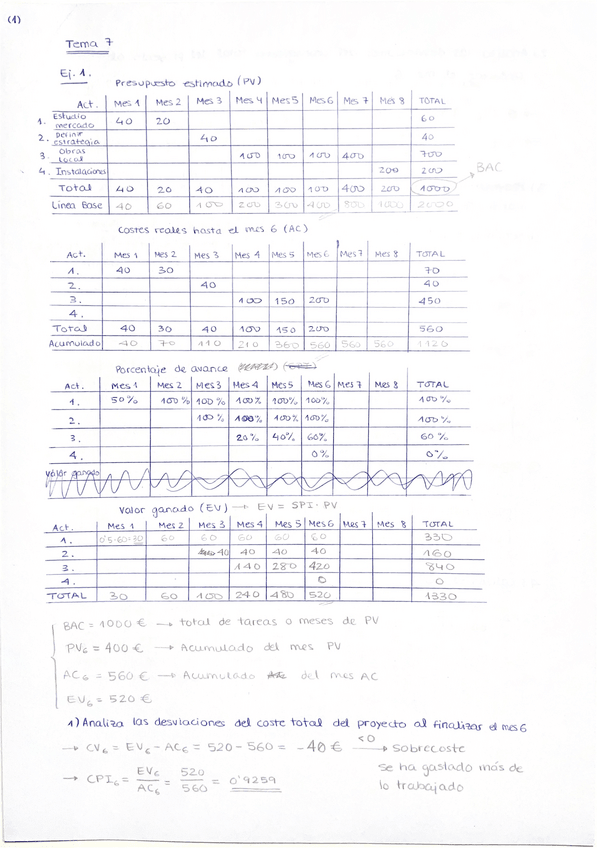 (1)
Tema 7
Ej. 1.
Presupuesto estimado (PV)
Act. Mes 1 Mes 2 Mes 3 Mes 4 Mes 5 Mes 6 Mes 7 Mes 8 TOTAL
1. Estudio mercado 40 20 60
2. Definir estrategia 40 40
3. Obras Local 100 100 100 400 700
4. Instalaciones 200 200
BAC
Total 40 20 40 100 100 100 400 200 1000
Línea Base 40 60 100 200 300 400 800 1000 2000
Costes reales hasta el mes 6 (AC)
Act. Mes 1 Mes 2 Mes 3 Mes 4 Mes 5 Mes 6 Mes 7 Mes 8 TOTAL
1. 40 30 70
2. 40 40
3. 100 150 200 450
4.
Total 40 30 40 100 150 200 560
Acumulado 40 70 110 210 360 560 560 560 1120
Porcentaje de avance
Act. Mes 1 Mes 2 Mes 3 Mes 4 Mes 5 Mes 6 Mes 7 Mes 8 TOTAL
1. 50% 100% 100% 100% 100% 100% 100%
2. 100% 100% 100% 100% 100%
3. 20% 40% 60% 60%
4. 0% 0%
Valor ganado
Valor ganado (EV) → EV = SPI · PV
Act. Mes 1 Mes 2 Mes 3 Mes 4 Mes 5 Mes 6 Mes 7 Mes 8 TOTAL
1. 0'5·60=30 60 60 60 60 60 330
2. 40 40 40 40 160
3. 140 280 420 840
4. 0 0
TOTAL 30 60 100 240 480 520 1330
BAC = 1000 € → total de tareas o meses de PV
PV6 = 400 € → Acumulado del mes PV
AC6 = 560 € → Acumulado del mes AC
EV6 = 520 €
1) Analiza las desviaciones del coste total del proyecto al finalizar el mes 6
→ CV6 = EV6 - AC6 = 520 - 560 = -40 € <0 → sobrecoste
se ha gastado más de
lo trabajado
→ CPI6 = EV6/AC6 = 520/560 = 0'9259